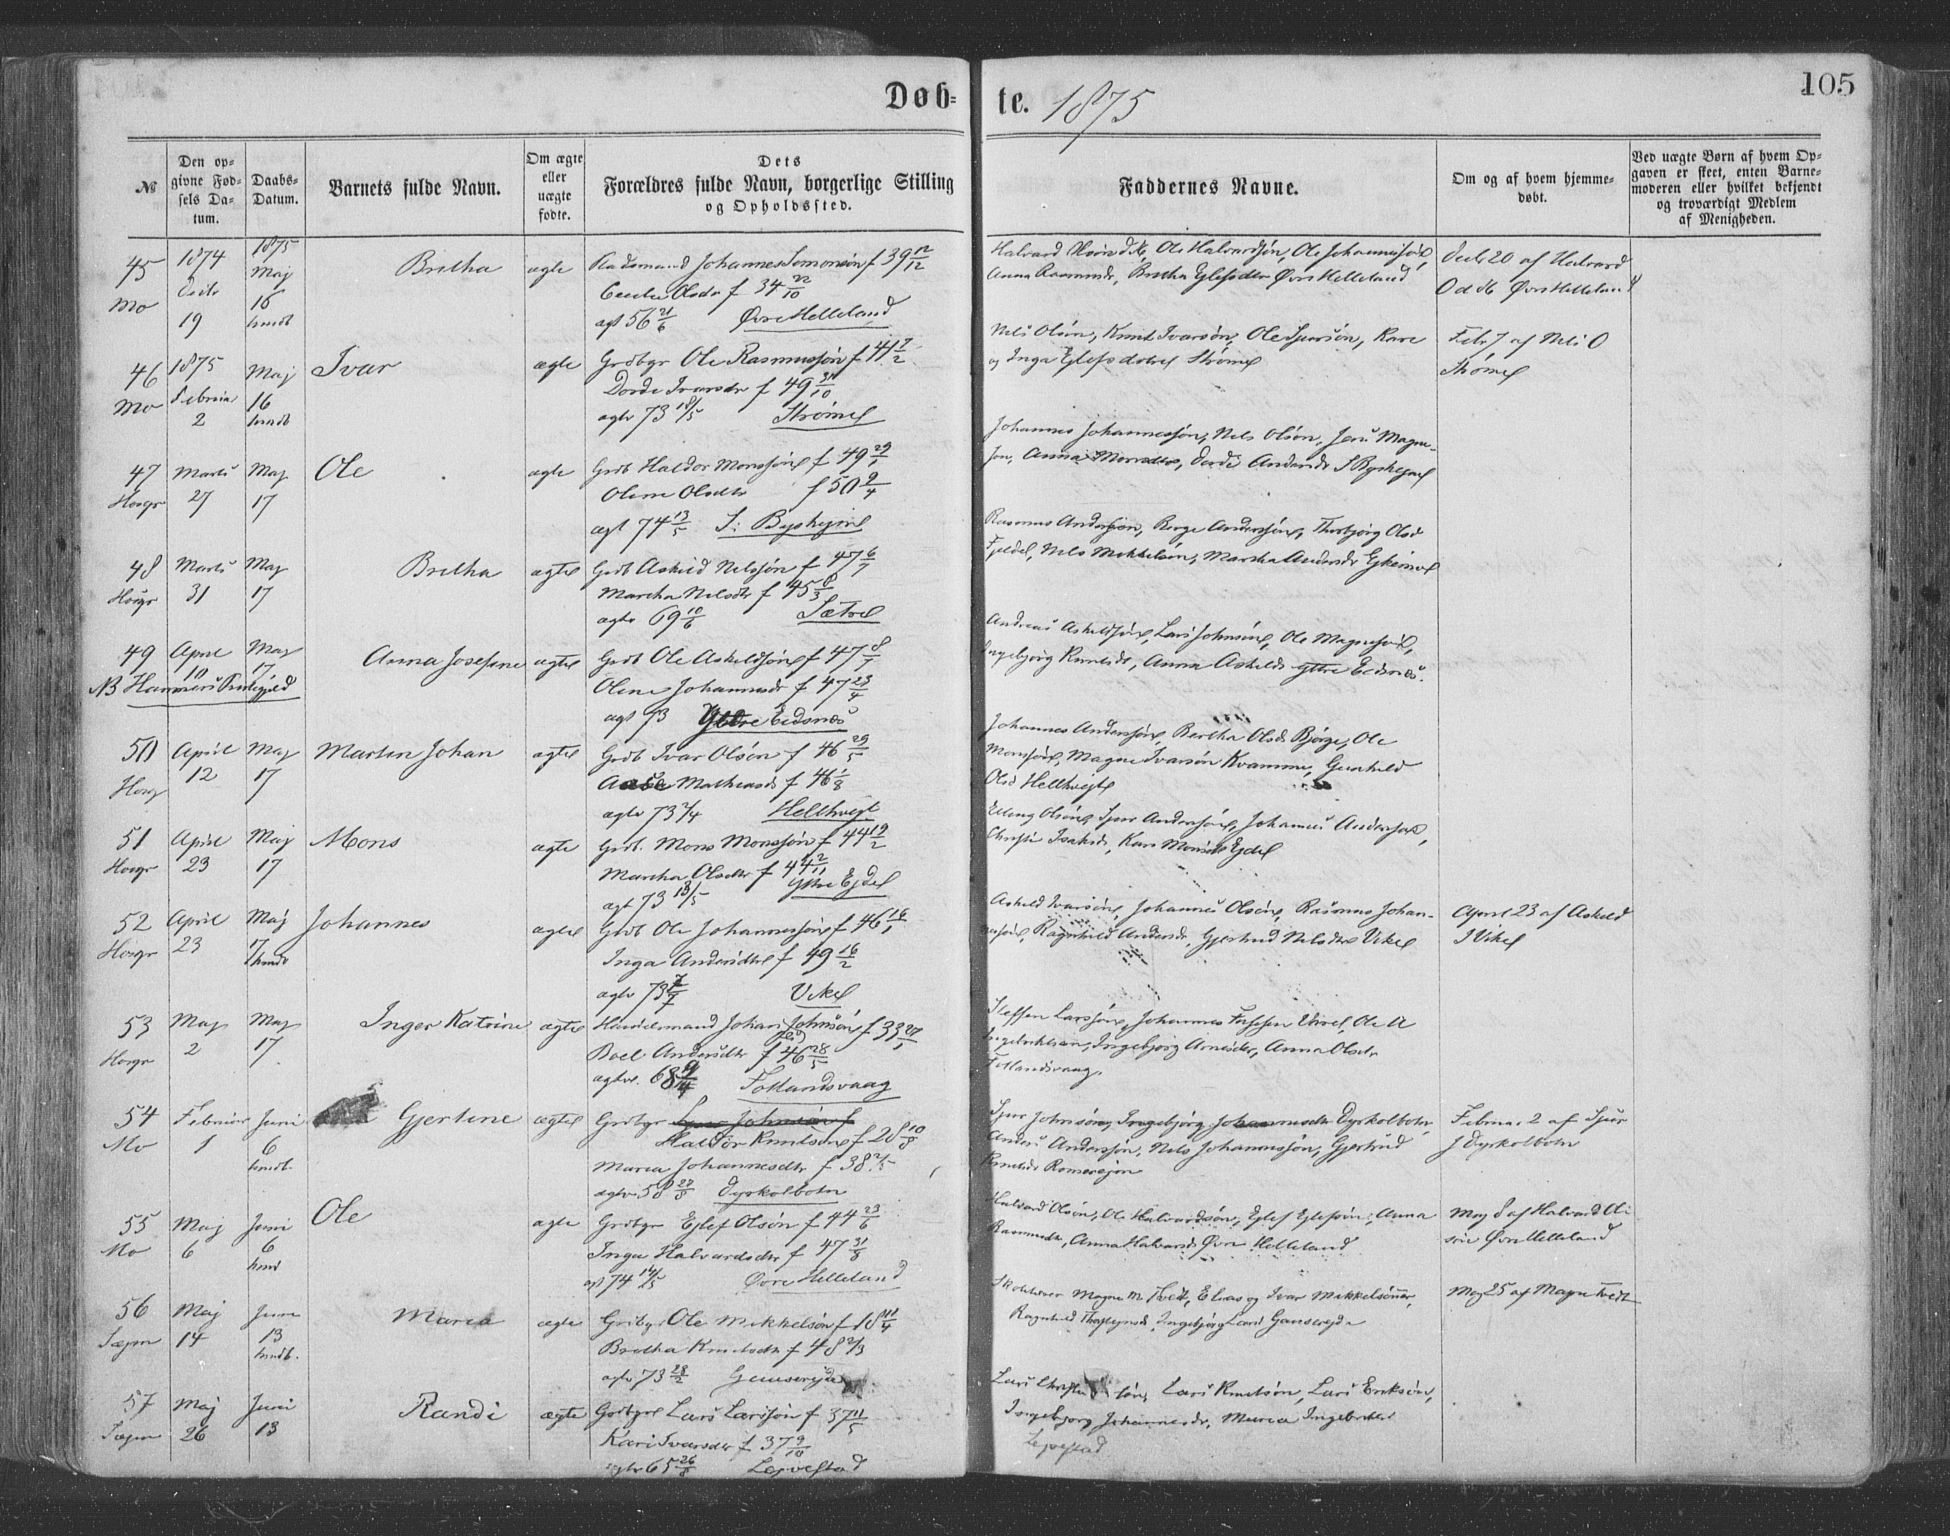 Døb-
te. 1875
105
№
Den op-
givne Fød-
sels Da-
tum.
Daabs-
Datum.
Barnets fulde Navn.
Om ægte
eller
uægte
fødte.
Dets
Forældres fulde Navn, borgerlige Stilling
og Opholdssted.
Faddernes Navne.
Om og af hvem hjemme-
døbt.
Ved uægte Børn af hvem Op-
gaven er skeet, enten Barne-
moderen eller hvilket bekjendt
og troværdigt Medlem
af Menigheden.
45
Mo
1874
19
1875
Maj
16
hmdb
Bretha
ægte
Johannes Simonsøn f 39 12/12
Olsdr f 34 22/10
ægt 56 21/6 Øvre Helleland
Halvard Olsøn, Ole Halvardsøn, Ole Johannesøn,
Anna Rasmusdr, Bretha Eylefsdr Øvre Helleland
20 af Halvard
Øvre Helleland
46
Mo
1875
Februar
2
Maj
16
hmdb
Ivar
ægte
Grdbgr Ole Rasmussøn f 41
Dorde Ivarsdr f 49
ægtv 73 18/5 Strømme
Nels Olsøn, Knut Ivarsøn, Ole Sjursøn, Kare
og Inga Eylefsdotre Strømme
Feb 7 af Nels O
Strømme
47
Hosgr
Marts
27
Maj
17
Ole
ægte
Grdb Haldor Monssøn f 49
Olene Olsdtr f 50 9/4
ægt 74 13/5 I: Byskejme
Johannes Johannessøn, Nels Olsøn, Jens Magne-
søn, Anna Monsdtr, Dorde Andersdr I Byskejme
48
Hosgr
Marts
31
Maj
17
Bretha
ægte
Grdb Askild Nilssøn f 47 6/7
Martha Nelsdtr f 45 8/3
ægtv 69 10/6 Sætre
Rasmus Andersøn, Borge Andersøn, Thorbjørg Olsd
Fjeldel, Nels Mikkelsøn, Martha Andersdr
49
April
10
Maj
17
NB Hammers Prestegjeld
Anna Josefine
ægte
Grdb Ole Askeldsøn f 47 8/7
Olene Johannesdr f 47 23/4
ægt 73 Yttre Eidsnes
Andreas Askeldsøn, Lars Johnsøn, Ole Magnesøn,
Ingebjørg Knutsdr, Anna Askelds Yttre Eidsnes.
50
Hosg
April
12
Maj
17
Martin Johan
ægte
Grdb Ivar Olsøn f 46 29/5
Mathiasd f 46 1/8
ægtv 73 7/4 Hellhvejt
Johannes Andersøn, Bertha Olsdr Bjørge, Ole
Monssøn, Magne Ivarsøn Kvamme, Gunhild
Olsd Hellhvejt
51
Hosgr
April
23
Maj
17
Mons
ægte
Grdb. Mons Monssøn f 44 19/2
Martha Olsdtr f 44 2/11
ægt 73 18/5 Yttre Ejdel
Elling Olsøn, Sjur Andersøn, Johannes Andersøn,
Christi Isaksdr, Kari Monsdtr Ejdel
52
Hosgr
April
23
Maj
17
hmdb
Johannes
ægte
Grdb Ole Johannessøn f 46
Inga Andersdtr f 49 16/2
ægtv 73 Vike
Askeld Ivarsøn, Johannes Olsøn, Rasmus Johan-
nesøn, Ragnhild Andersdr, Gjertrud Nelsdtr Vike
April 23 af Askeld
I Vike
53
Hosgr
Maj
2
Maj
17
Inger Katrine
ægte
Handelsmand Johan Johnsøn f 33
Boel Andersdtr f 46 28/5
ægtv. 68 Fotlandsvaag
Steffen Larssøn, Johannes
Ingebrektsøn, Ingebjørg Arnesdr, Anna Olsdr
Fotlandsvaag.
54
Mo
Februar
1
Juni
6
hmdb.
Gjertine
ægte
Grdbgr
Haldor Knutsøn f 28 10/8
Maria Johannesdtr f 38
ægtv 58 27/8 Dyrkolbotn
Sjur Johnsøn, Ingebjørg Johannesdtr Dyrkolbotn,
Anders Andersøn, Nels Johannessøn, Gjertrud
Knutsdr Romarejm
Februar 2 af Sjur
J Dyrkolbotn
55
Mo
Maj
6
Juni
6
hmd
Ole
ægte
Grdbgr Eylef Olsøn f 44 23/6
Inga Halvardsdtr f 47 31/8
ægt 74 14/5 Øvre Helleland
Halvard Olsøn, Ole Halvardsøn, Eylef Eylefsøn, Anna
Rasmusdtr, Anna Halvardsdr Øvre Helleland
Maj 8 af Halvard Ol-
søn Øvre Helleland
56
Sæjm
Maj
14
Juni
13
hmdb.
Maria
ægte
Grdbgr Ole Mikkelsøn f
Bretha Knutsdtr f 48
ægtv 73 28/2
Magne M. Tvedt, Elias og Ivar Mikkelsønner,
Ragnhild Thorsteinsdr, Ingebjørg Larsd
Maj 25 af Magne Tvedt
57
Sæjm
Maj
26
Juni
13
Randi
ægte
Grdbgr Lars Larssøn f 37 11/5
Kari Ivarsdtr f 37 9/10
ægtv 65 26/8 Lejvestad
Lars søn, Lars Knutsøn, Lars Eriksøn,
Ingebjørg Johannesdr, Maria Ingebrektsd
Lejvestad